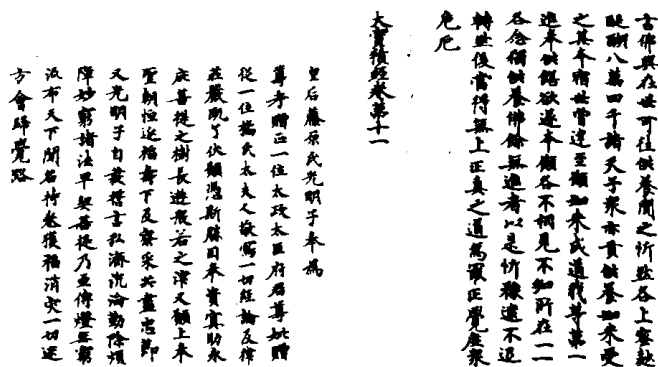 古佛興在世可往供養聞之忻然各上寶鉢
醍醐八萬四千諸天子衆亦賷供養如來受
之其本宿世常建至願如來成道我等第一
進奉供饌欲遂本願各不相見不知所在一一
各念獨供養佛餘無進者以是忻豫逮不退
轉世後當得無上正真之道為最正覺度衆
危厄
大寶積經卷第十一
皇后藤原氏光明子奉為
尊考贈正一位太政太臣府君尊妣贈
從一位橘氏太夫人敬寫一切經論及律
莊嚴既了伏願憑斯勝因奉資冥助永
庇菩提之樹長遊般若之津又願上奉
聖朝恒延福壽下及寮采共盡忠節
又光明子自發誓言弘濟沉淪勤除煩
障妙窮諸法早契菩提乃至傳燈無窮
流布天下聞名持卷獲福消災一切迷
方會歸覺路